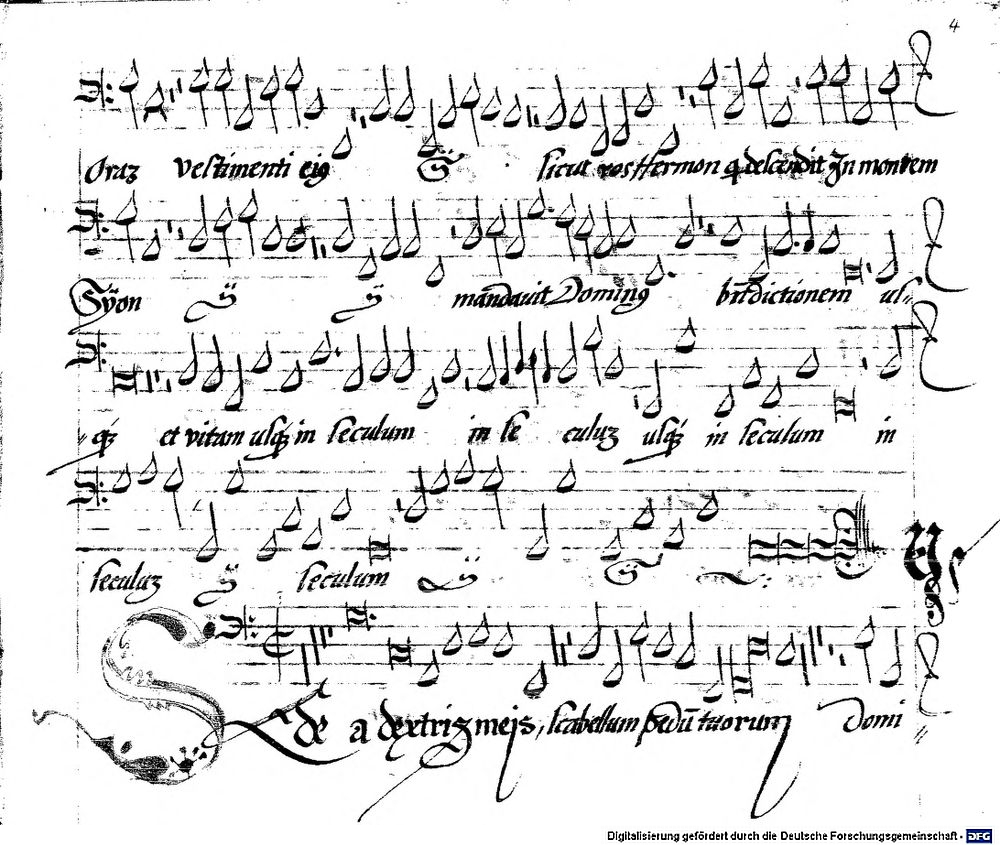 4
Oraz vestimenti eiꝰ ij sicut ros Hermon q descendit In montem
Syon ij ij mādavit Dominꝰ bñdictionem us-
-qꝫ et vitam usqꝫ in seculum in se culuz usqꝫ in seculum in
seculuz ij seculum ij ij
Sede a dextris meis, scabellum pedū tuorum Domi
Digitalisierung gefördert durch die Deutsche Forschungsgemeinschaft - DFG